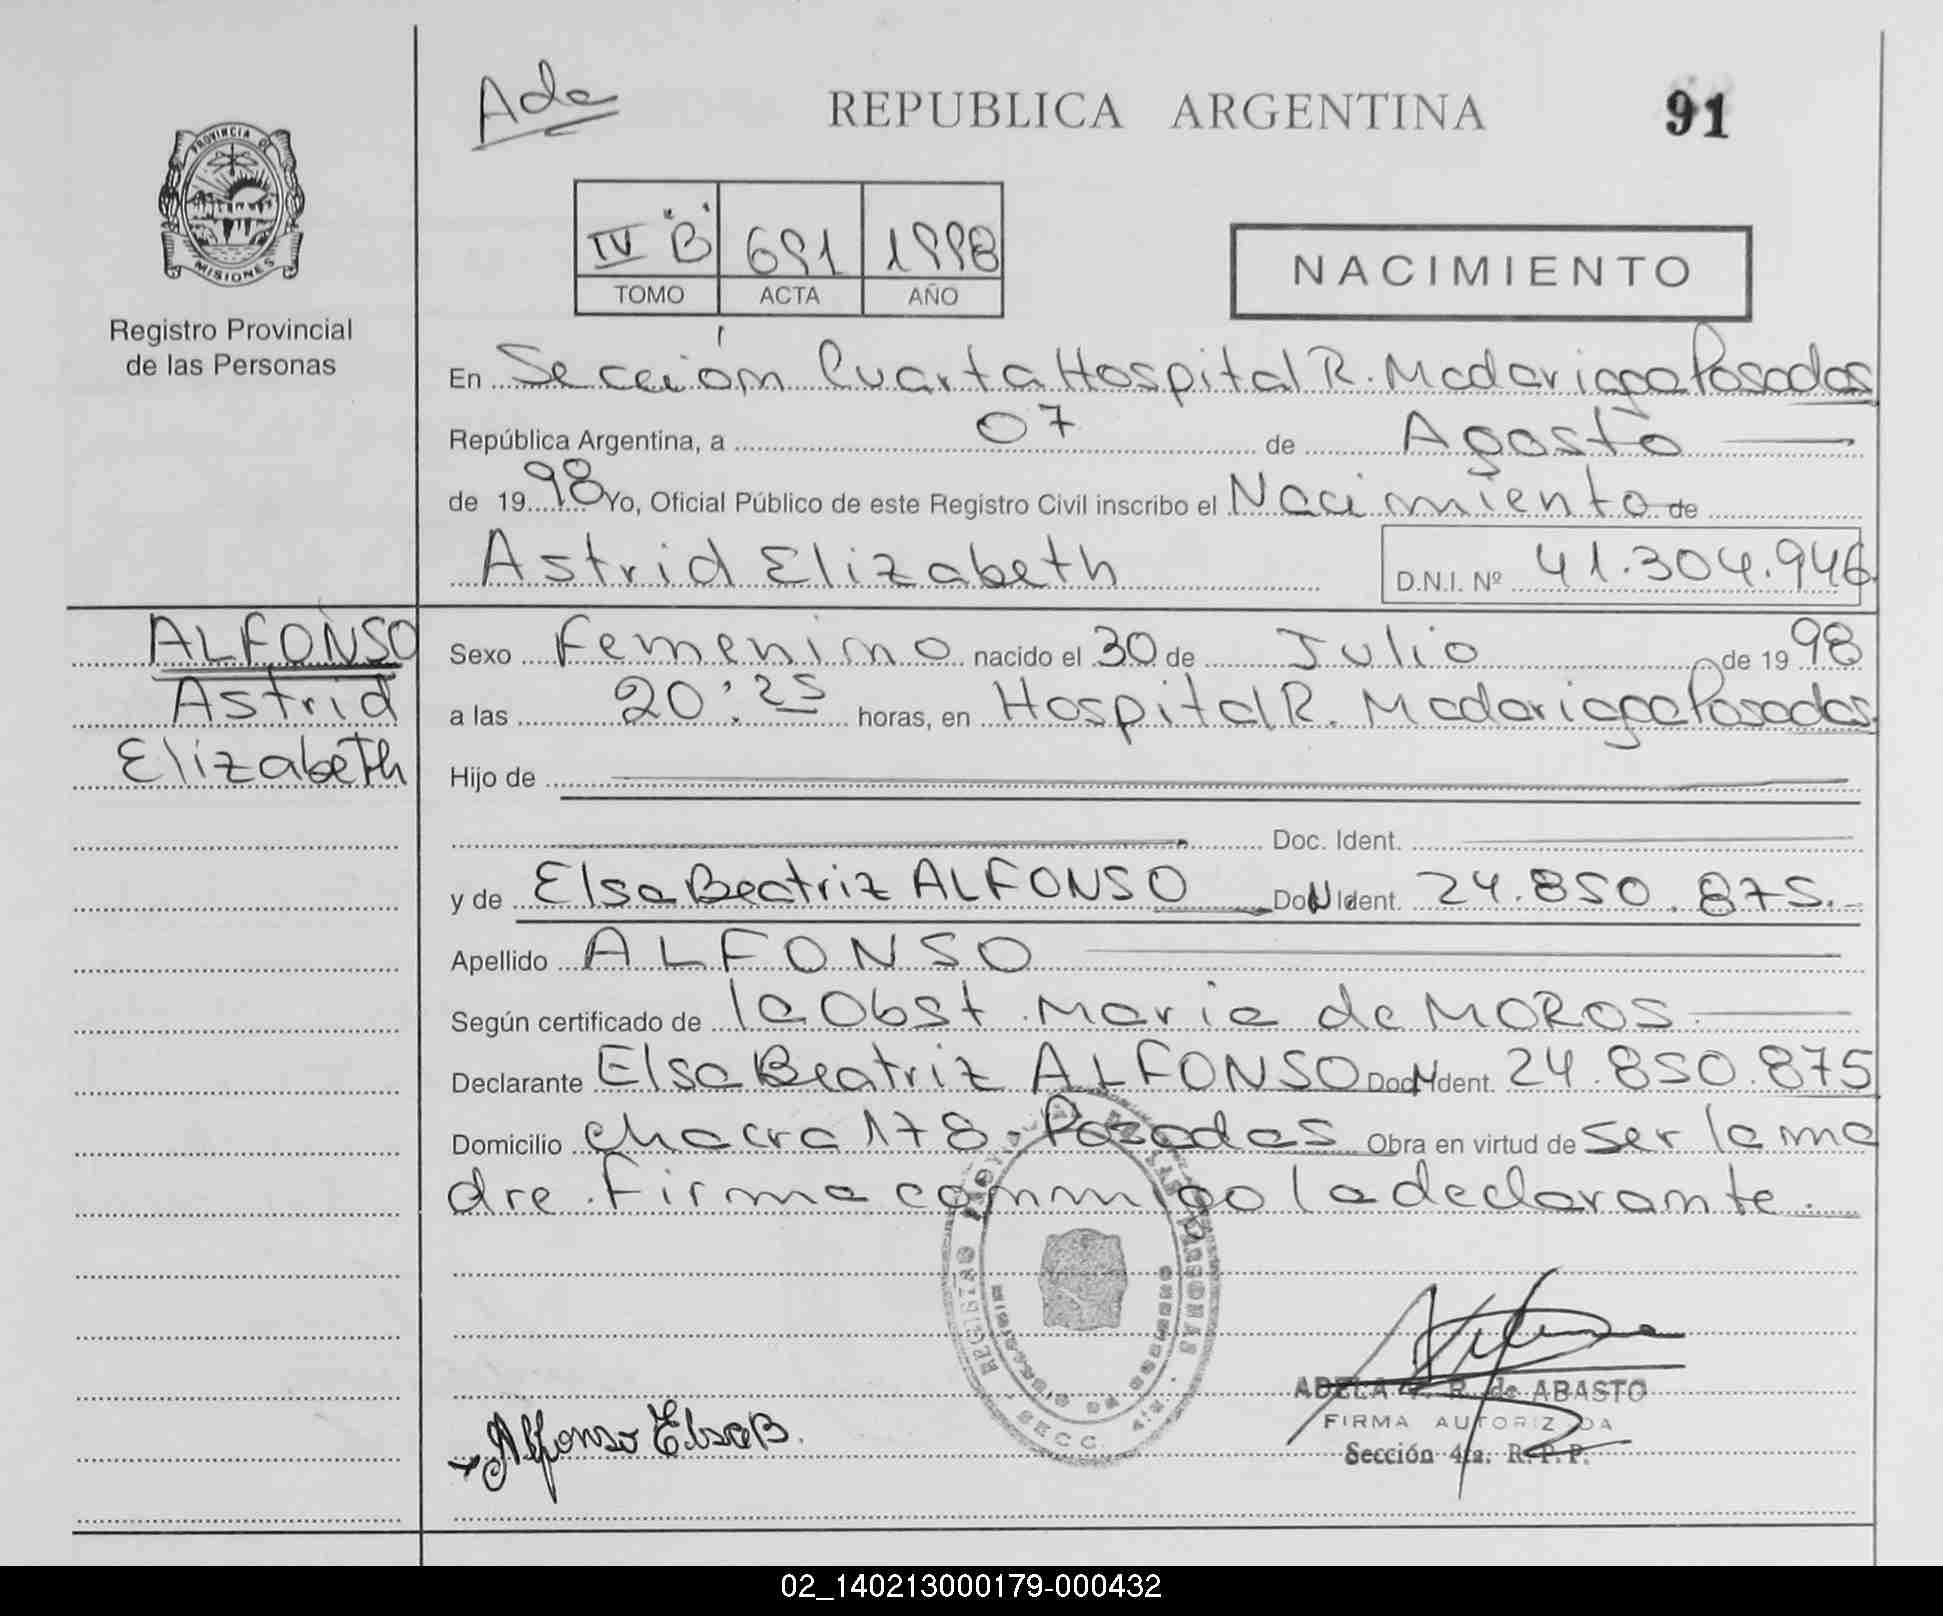 Ada
REPUBLICA ARGENTINA
91
PROVINCIA DE
MISIONES
Registro Provincial
de las Personas
IV "B" 691 1998
TOMO ACTA AÑO
NACIMIENTO
En Sección Cuarta Hospital R. Madariaga Posadas
República Argentina, a 07 de Agosto
de 1998 Yo, Oficial Público de este Registro Civil inscribo el Nacimiento de
Astrid Elizabeth D.N.I. Nº 41.304.946
ALFONSO
Astrid
Elizabeth
Sexo Femenino nacido el 30 de Julio de 1998
a las 20:25 horas, en Hospital R. Madariaga Posadas
Hijo de
Doc. Ident.
y de Elsa Beatriz ALFONSO Doc. N Ident. 24.850.875.-
Apellido ALFONSO
Según certificado de la Obst. Maria de MOROS
Declarante Elsa Beatriz ALFONSO Doc. N Ident. 24.850.875
Domicilio chacra 178 - Posadas Obra en virtud de ser la ma
dre. Firma conmigo la declarante.
SECC. 4ta.
Alfonso Elsa B.
ADELA R. de ABASTO
FIRMA AUTORIZADA
Sección 4ta. R.P.P.
02_140213000179-000432